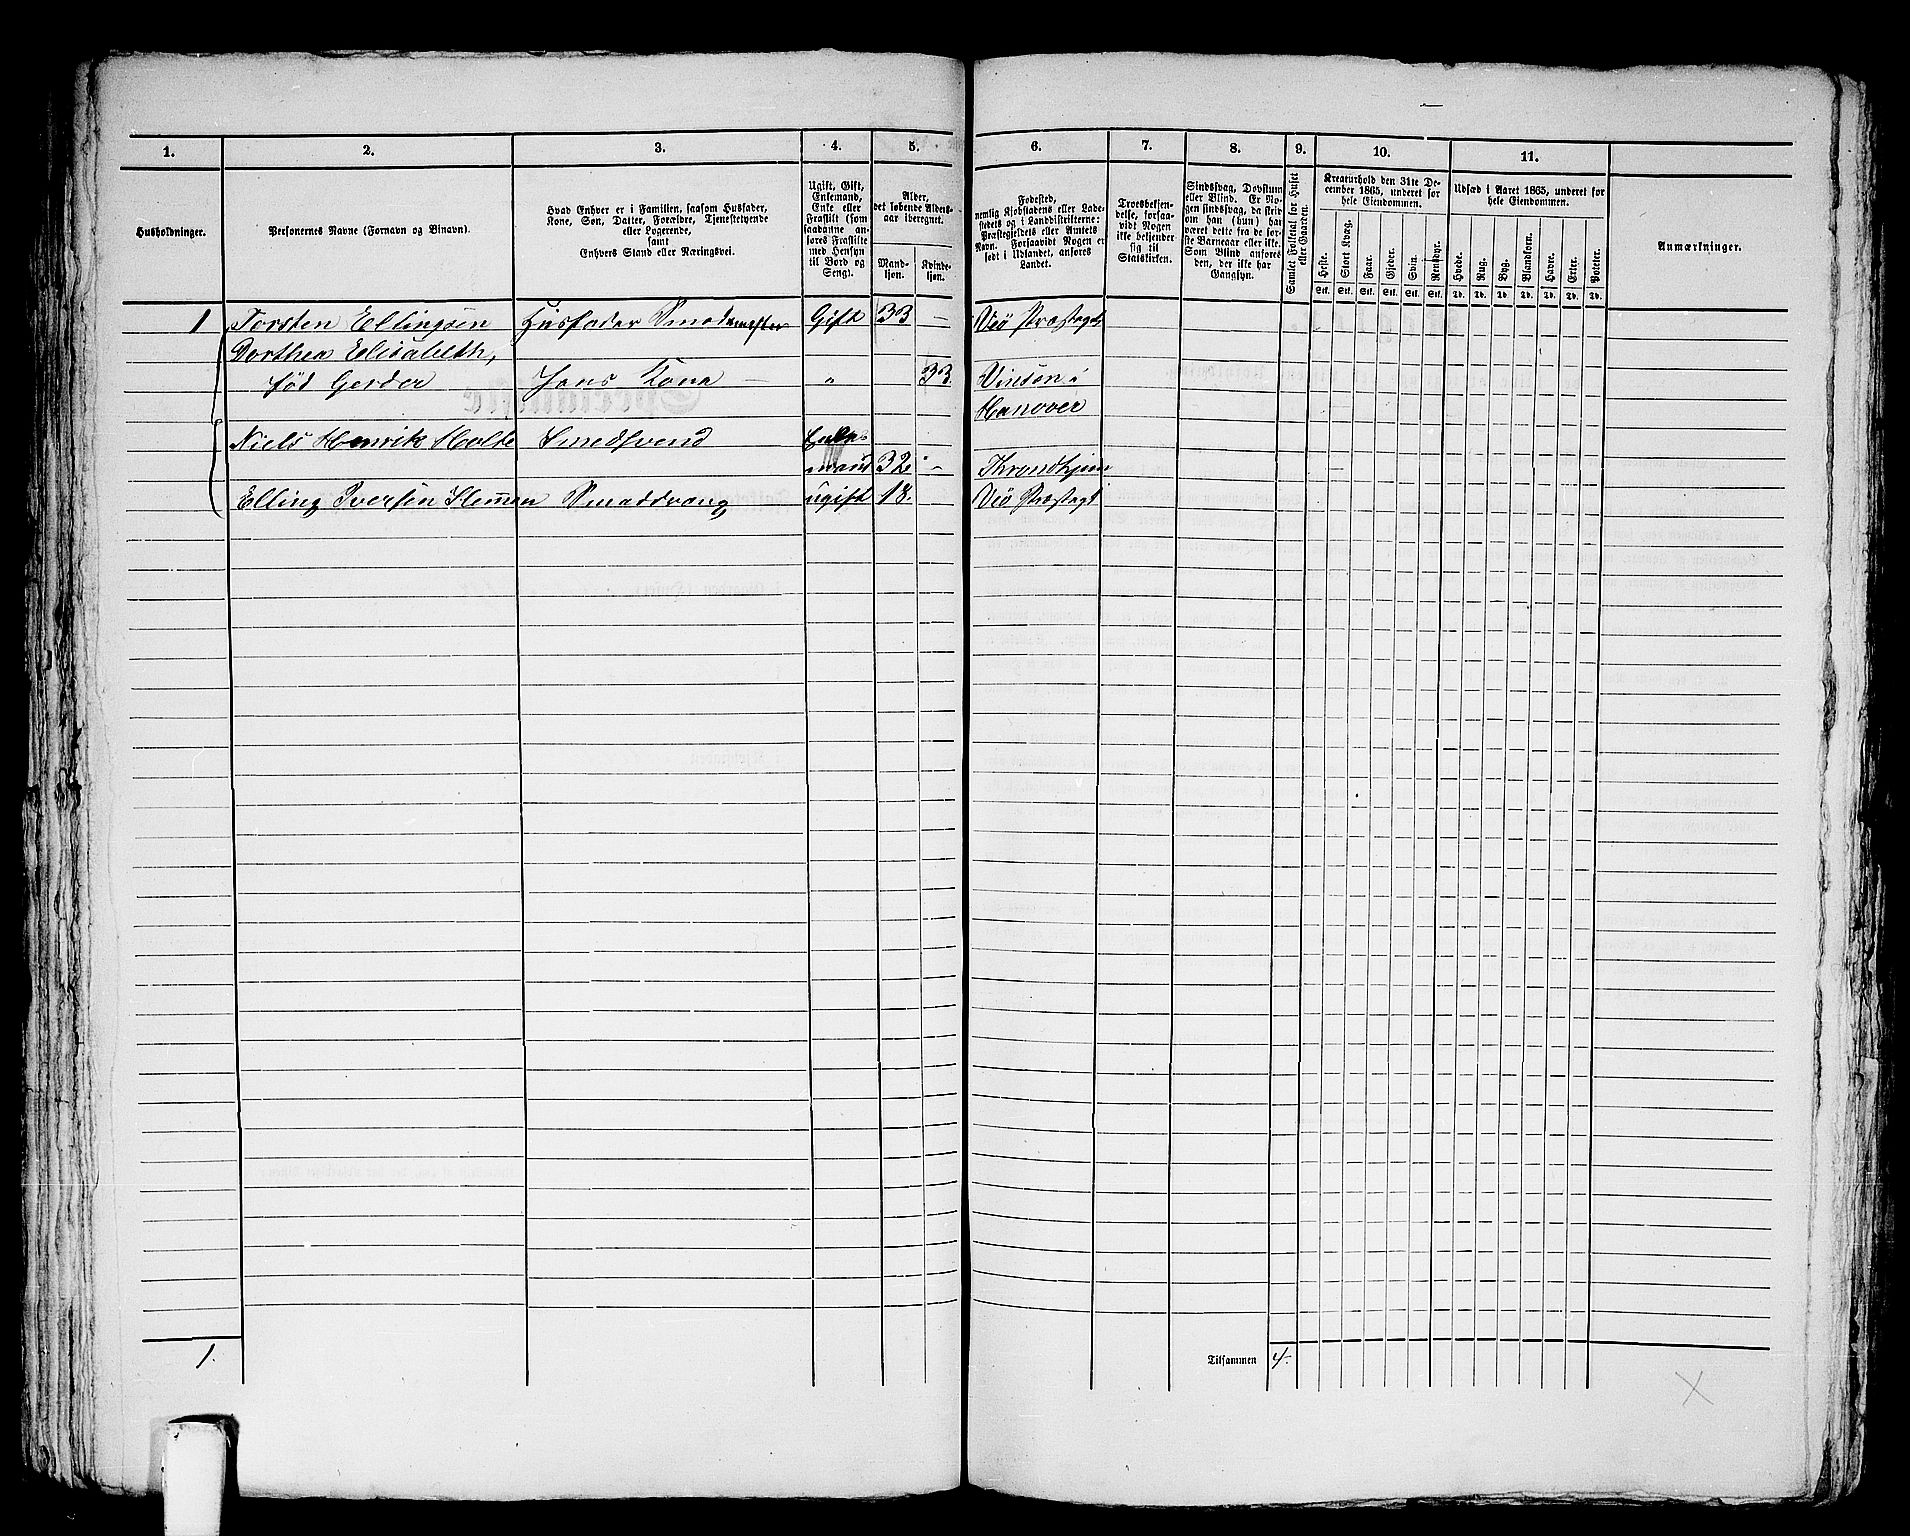 1. 2. 3. 4. 5. 6. 7. 8. 9. 10. 11.
Husholdninger.
Personernes Navne (Fornavn og Binavn).
Hvad Enhver er i Familien, saasom Husfader,
Kone, Søn, Datter, Forældre, Tjenestetyende
eller Logerende,
samt
Enhvers Stand eller Næringsvei.
Ugift, Gift,
Enkemand,
Enke eller
Fraskilt (som
saadanne an-
føres Fraskilte
med Hensyn
til Bord og
Seng).
Alder,
det løbende Alders-
aar iberegnet.
Mand-
kjøn.
Kvinde-
kjøn.
Fødested,
nemlig Kjøbstadens eller Lade-
stedets og i Landdistrikterne:
Præstegjeldets eller Amtets
Navn. Forsaavidt Nogen er
født i Udlandet, anføres
Landet.
Troesbekjen-
delse, forsaa-
vidt Nogen
ikke bekjender
sig til
Statskirken.
Sindssvag, Døvstum
eller Blind. Er No-
gen sindssvag, da skriv
om han (hun) har
været dette fra de før-
ste Barneaar eller ikke.
Som Blind anføres
den, der ikke har
Gangsyn.
Samlet Folketal for Huset
eller Gaarden.
Kreaturhold den 31te De-
cember 1865, anføres for
hele Eiendommen.
Heste. Stort Kvæg. Faar. Gjeder. Svin. Rensdyr.
Stk. Stk. Stk. Stk. Stk. Stk.
Udsæd i Aaret 1865, anføres for
hele Eiendommen.
Hvede. Rug. Byg. Blandkorn. Havre. Erter. Poteter.
Td. Td. Td. Td. Td. Td. Td.
Anmærkninger.
1 Torsten Ellingsen Husfader Smedemester Gift 33 – Veø Præstegd
Dorthea Elisabeth,
fød Gerder Hans Kone – „ 33. Vinsen i
Hanover
Niels Henrik Holte Smedsvend Enke-
mand 32 – Throndhjem
Elling Iversen Ugift 18. – Veø Præstegd
1.
Tilsammen 4.
X